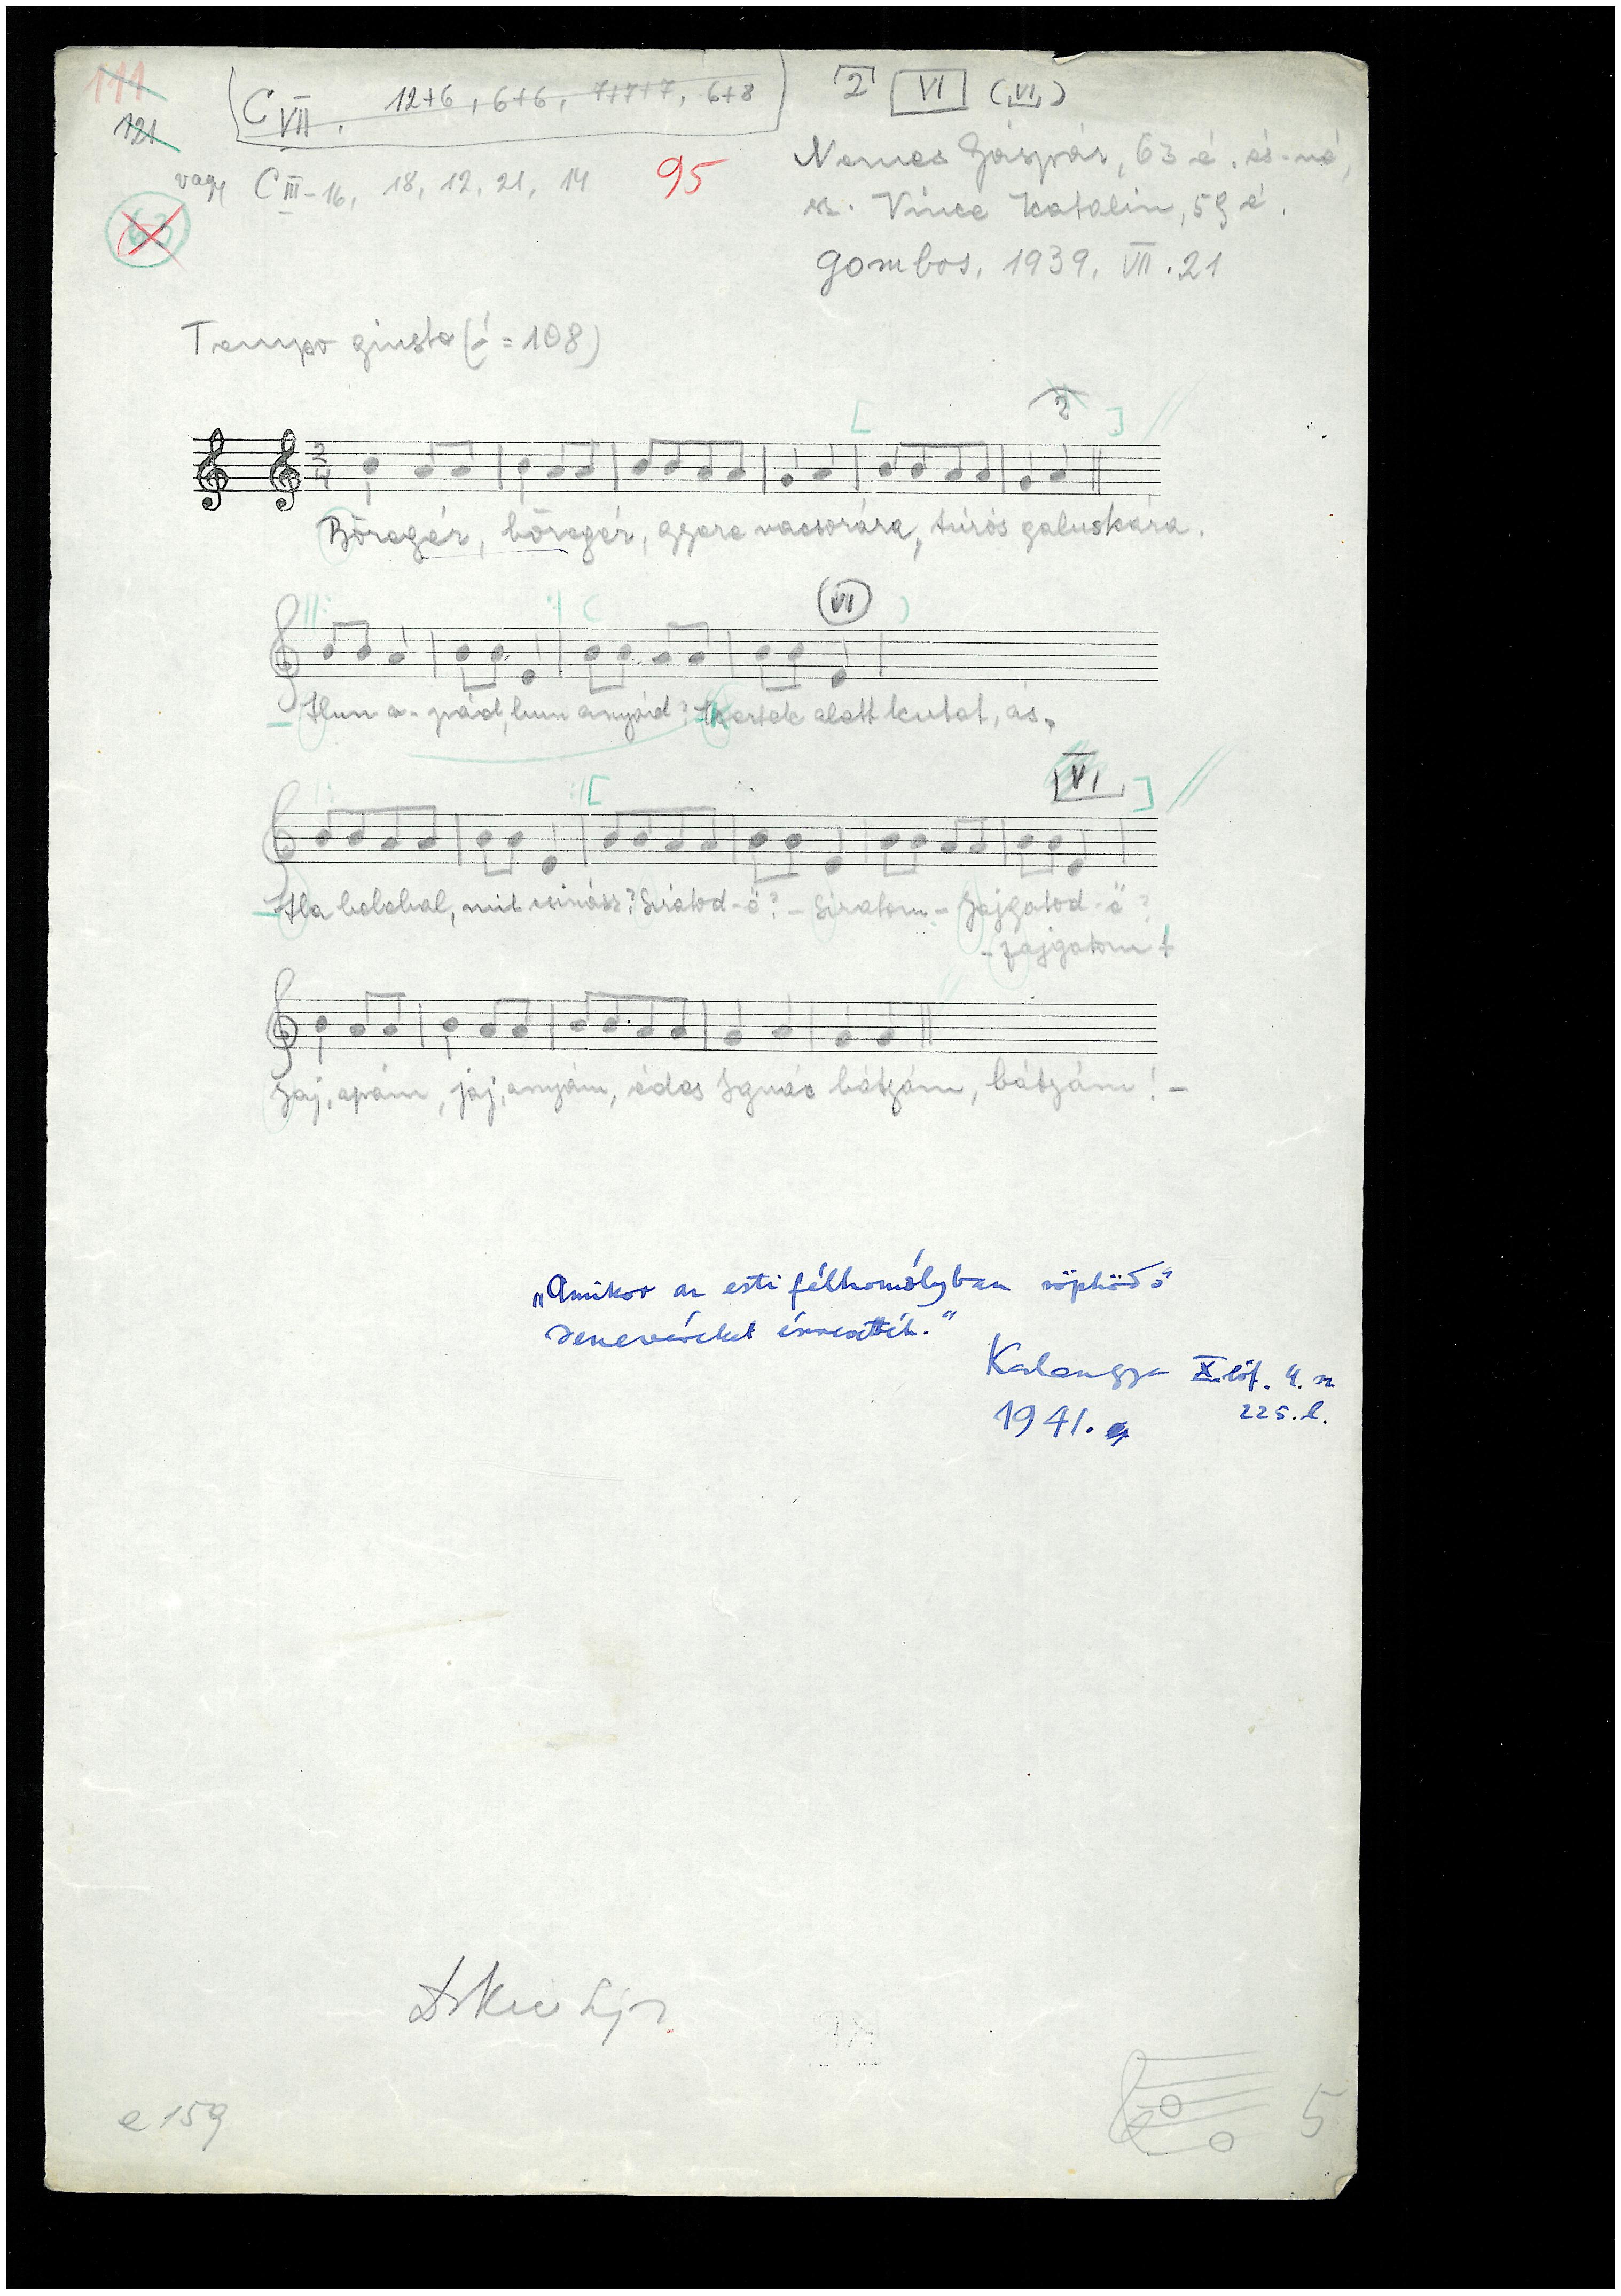 111
121
C VII. 12+6, 6+6, 7+7+7, 6+8
2 VI (VI)
vagy C III-16, 18, 12, 21, 14
95
63
Nemes Gáspár, 63 é. és-né,
sz. Vince Katalin, 59 é.
Gombos, 1939. VII. 21
Tempo giusto (♩ = 108)
2
2
4
Bőregér, bőregér, gyere vacsorára, túrós galuskára.
VI
- Hun a-pád, hun anyád? - Kertek alatt kutat, ás.
VI
- Ha balabal, mit csinász? Sirátod-ë? - Siratom - Jajgatod-ë?
- Jajgatom!
Jaj, apám, jaj, anyám, édes Ignác bátyám, bátyám! -
„Amikor az esti félhomályban röpködő
denevéreket észrevették.”
Kalangya X. évf. 4. sz
1941.
225. l.
e 159
5